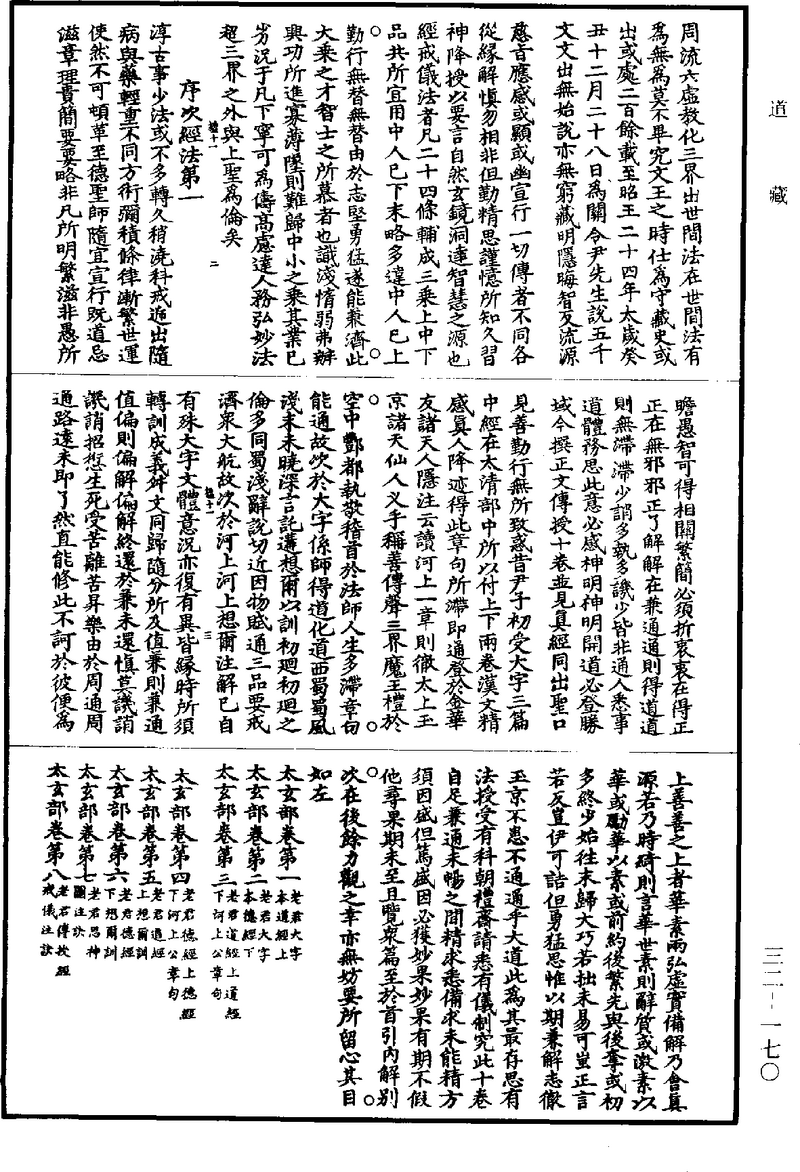 道藏
周流六虛教化三界出世間法在世間法有
為無為莫不畢究文王之時仕為守藏史或
出或處二百餘載至昭王二十四年太歲癸
丑十二月二十八日為關令尹先生說五千
文文出無始說亦無窮藏明隱晦智及流源
慈音應感或顯或幽宣行一切傳者不同各
從緣解慎勿相非但勤精思謹憶所知久習
神降授以要言自然玄鏡洞達智慧之源也
經戒儀法者凡二十四條輔成三乘上中下
品共所宜用中人已下未略多違中人已上
勤行無替無替由於志堅勇猛遂能兼濟此
大乘之才智士之所慕者也識淺情弱弗辦
興功所進寡薄墜則難歸中小之乘其業已
劣況于凡下寧可為儔高處達人務弘妙法
超三界之外與上聖為倫矣
二
序次經法第一
淳古事少法或不多轉久稍澆科戒遞出隨
病與藥輕重不同方術彌積條律漸繁世運
使然不可頓革至德聖師隨宜宣行既道忌
滋章理貴簡要要略非凡所明繁滋非愚所
瞻愚智可得相關繁簡必須折衷衷在得正
正在無邪邪正了解解在兼通通則得道道
則無滯滯少謂多執多譏少皆非通人悉事
道體務思此意必感神明神明開道必登勝
域今撰正文傳授十卷並見真經同出聖口
見善勤行無所致惑昔尹子初受大字三篇
中經在太清部中所以付上下兩卷漢文精
感真人降迹得此章句所滯即通登於金華
友諸天人隱注云讀河上一章則徹太上玉
京諸天仙人叉手稱善傳聲三界魔王禮於
空中酆都執敬稽首於法師人生多滯章句
能通故次於大字係師得道化道西蜀蜀風
淺末未曉深言託遘想爾以訓初迴初迴之
倫多同蜀淺辭說切近因物賦通三品要戒
濟眾大航故次於河上河上想爾注解已自
三
有殊大字文體意況亦復有異皆緣時所須
轉訓成義舛文同歸隨分所及值兼則兼通
值偏則偏解偏解終還於兼未還慎莫譏誚
譏誚招愆生死受苦離苦昇樂由於周通周
通路遠未即了然直能修此不訶於彼便為
上善善之上者華素兩弘虛實備解乃會真
源若乃時碕則言華世素則辭質或激素以
華或勵華以素或前約後繁先與後奪或初
多終少始往末歸大巧若拙未易可豈正言
若反豈伊可詰但勇猛思惟以期兼解志徹
玉京不患不通通乎大道此為其最存思有
法授受有科朝禮齋請悉有儀制究此十卷
自足兼通未暢之間精求悉備求未能精方
須因盛但篤盛因必獲妙果妙果有期不假
他尋果期未至且覽眾篇至於首引內解別
次在後餘力觀之幸亦無妨要所留心其目
如左
太玄部卷第一 老君大字本道經上
太玄部卷第二 老君大字本德經下
太玄部卷第三 老君道經上道經下河上公章句
太玄部卷第四 老君德經上德經下河上公章句
太玄部卷第五 老君道經上想爾訓
太玄部卷第六 老君德經下想爾訓
太玄部卷第七 老君思神圖注訣
太玄部卷第八 老君傳授經戒儀注訣
三二-一七〇